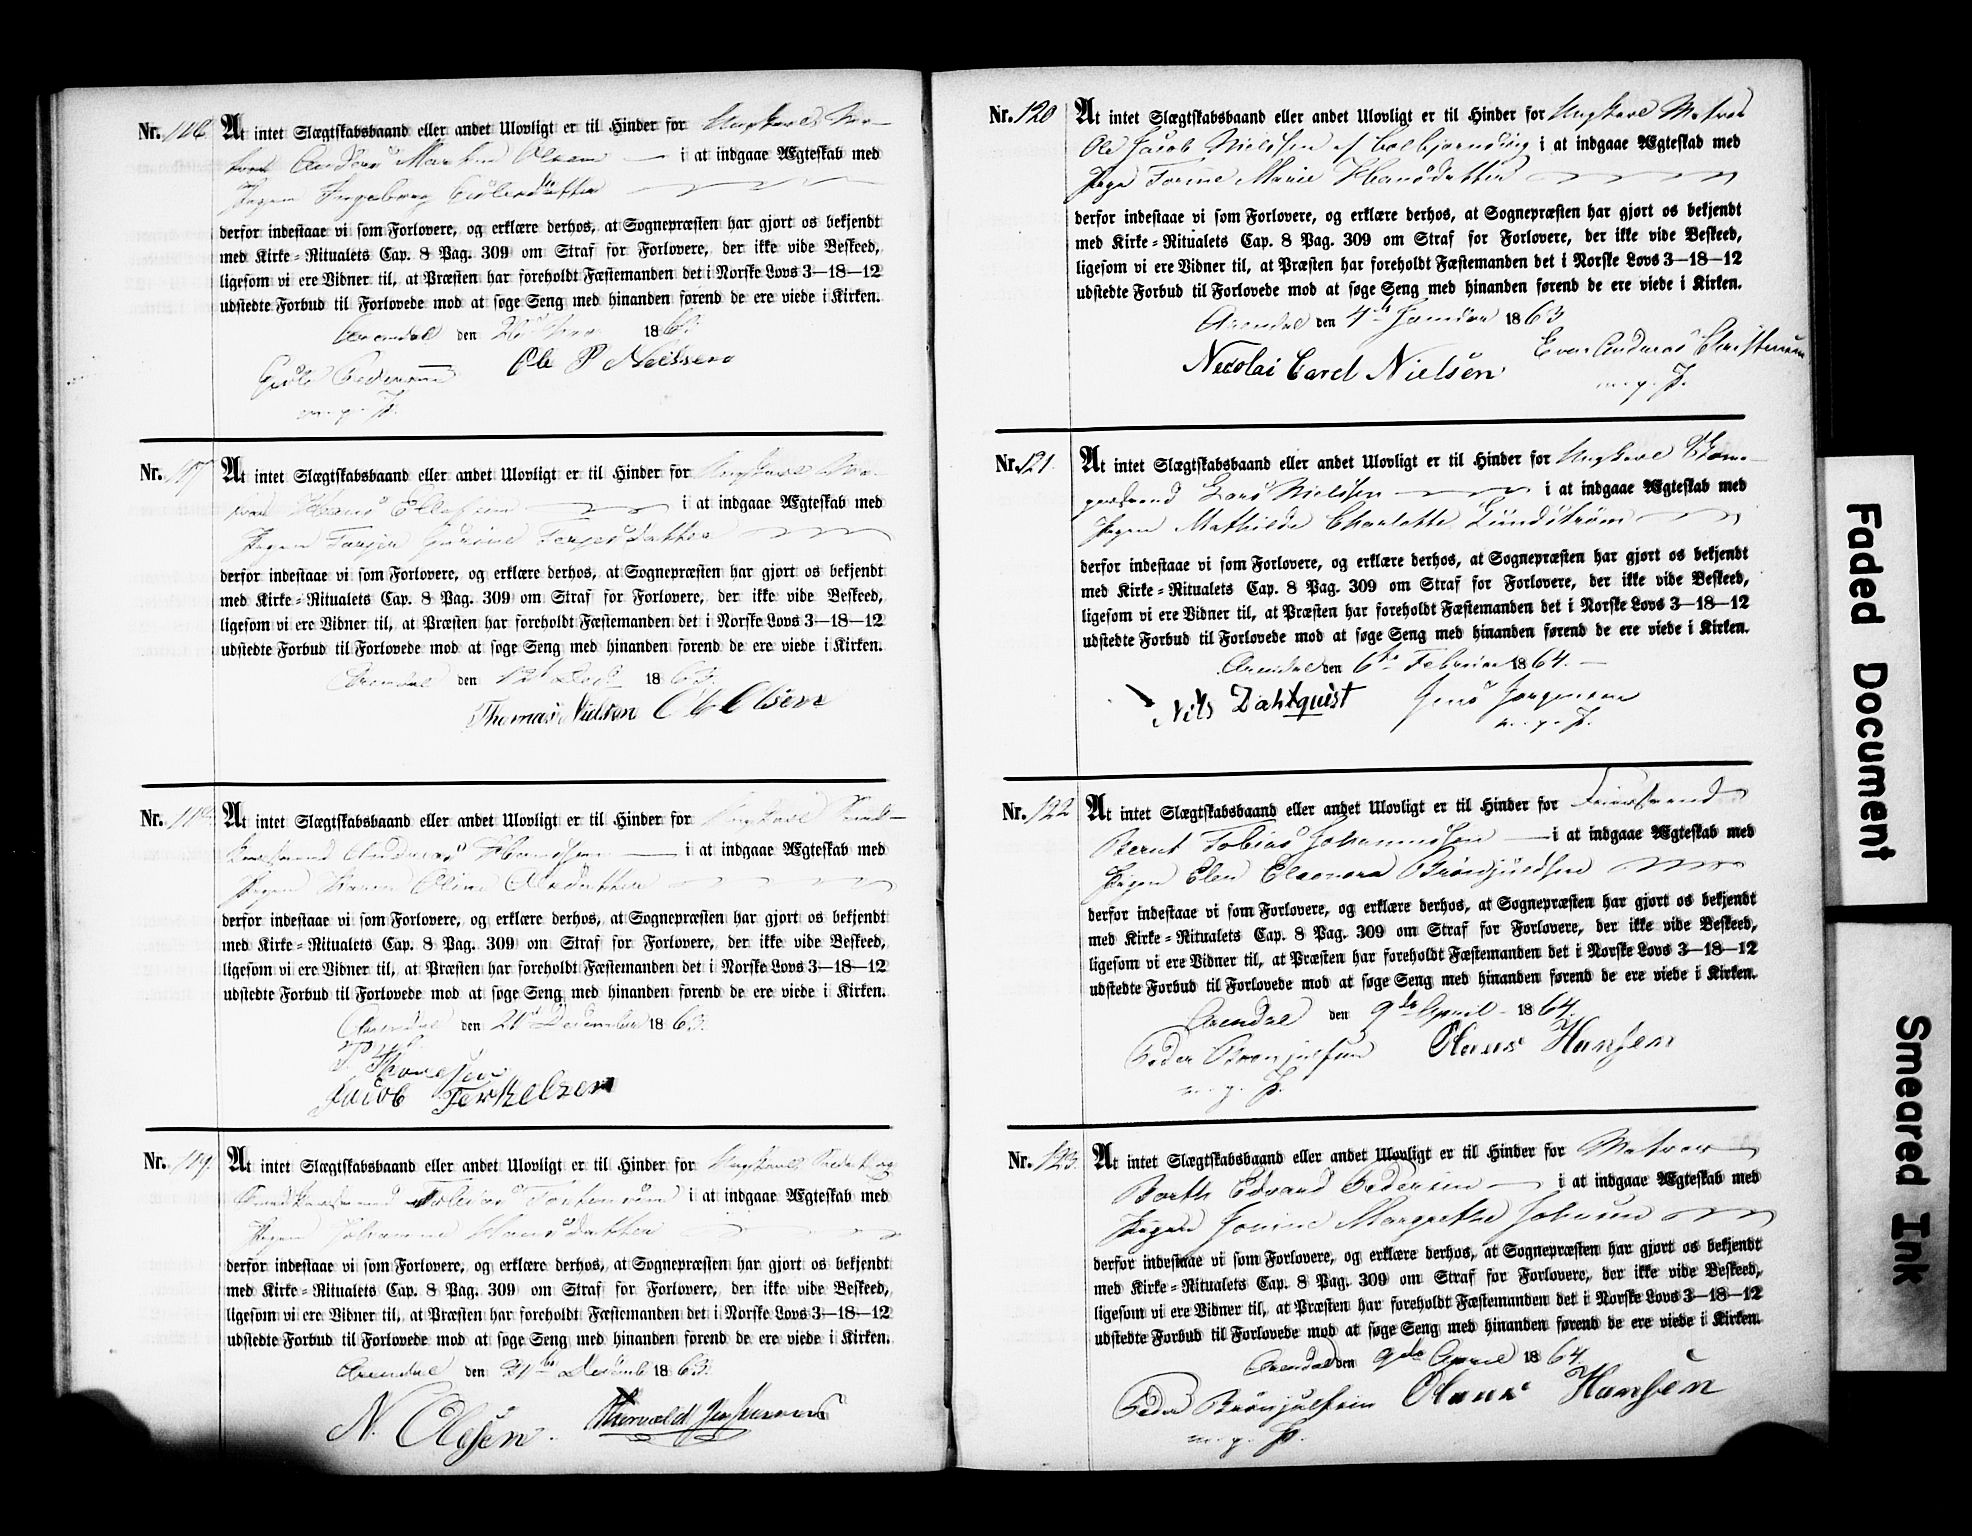 Nr. 116. At intet Slægtskabsbaand eller andet Ulovligt er til Hinder for Ungkarl
Anders Martin Olsen i at indgaae Ægteskab med
Pigen Ingeborg
derfor indestaae vi som Forlovere, og erklære derhos, at Sognepræsten har gjort os bekjendt
med Kirke-Ritualets Cap. 8 Pag. 309 om Straf for Forlovere, der ikke vide Beskeed,
ligesom vi ere Vidner til, at Præsten har foreholdt Fæstemanden det i Norske Lovs 3—18—12
udstedte Forbud til Forlovede mod at søge Seng med hinanden førend de ere viede i Kirken.
Arendal den 1863.
Pedersen Ole P Neilsen
m. p. P.
Nr. 117 At intet Slægtskabsbaand eller andet Ulovligt er til Hinder for Ungkarl
Hans Ellefsen i at indgaae Ægteskab med
Pigen Gurine Terjesdatter
derfor indestaae vi som Forlovere, og erklære derhos, at Sognepræsten har gjort os bekjendt
med Kirke-Ritualets Cap. 8 Pag. 309 om Straf for Forlovere, der ikke vide Beskeed,
ligesom vi ere Vidner til, at Præsten har foreholdt Fæstemanden det i Norske Lovs 3—18—12
udstedte Forbud til Forlovede mod at søge Seng med hinanden førend de ere viede i Kirken.
Arendal den 1863.
Thomas Nielsen Ole Olsen
Nr. 118. At intet Slægtskabsbaand eller andet Ulovligt er til Hinder for Ungkarl
Andreas Hansen i at indgaae Ægteskab med
Pigen Karen Oline Olsdatter
derfor indestaae vi som Forlovere, og erklære derhos, at Sognepræsten har gjort os bekjendt
med Kirke-Ritualets Cap. 8 Pag. 309 om Straf for Forlovere, der ikke vide Beskeed,
ligesom vi ere Vidner til, at Præsten har foreholdt Fæstemanden det i Norske Lovs 3—18—12
udstedte Forbud til Forlovede mod at søge Seng med hinanden førend de ere viede i Kirken.
Arendal den 21 December 1863.
T. Thonesen
Jacob Terkelsen
Nr. 119. At intet Slægtskabsbaand eller andet Ulovligt er til Hinder for Ungkarl
Tobias Torkensen i at indgaae Ægteskab med
Pigen Johanne Hansdatter
derfor indestaae vi som Forlovere, og erklære derhos, at Sognepræsten har gjort os bekjendt
med Kirke-Ritualets Cap. 8 Pag. 309 om Straf for Forlovere, der ikke vide Beskeed,
ligesom vi ere Vidner til, at Præsten har foreholdt Fæstemanden det i Norske Lovs 3—18—12
udstedte Forbud til Forlovede mod at søge Seng med hinanden førend de ere viede i Kirken.
Arendal den 21 Decemb 1863.
N. Olesen. Thorvald
Nr. 120 At intet Slægtskabsbaand eller andet Ulovligt er til Hinder for Ungkarl Matros
Ole Jacob Nielssen af Colbjørnsvig i at indgaae Ægteskab med
Pige Torine Marie Hansdatter
derfor indestaae vi som Forlovere, og erklære derhos, at Sognepræsten har gjort os bekjendt
med Kirke-Ritualets Cap. 8 Pag. 309 om Straf for Forlovere, der ikke vide Beskeed,
ligesom vi ere Vidner til, at Præsten har foreholdt Fæstemanden det i Norske Lovs 3—18—12
udstedte Forbud til Forlovede mod at søge Seng med hinanden førend de ere viede i Kirken.
Arendal den 4 Januar 1863
Necolai Carel Nielsen Even Andreas Christensen
m. p. P.
Nr. 121. At intet Slægtskabsbaand eller andet Ulovligt er til Hinder for Ungkarl
Lars Nielsen i at indgaae Ægteskab med
Pigen Mathilde Charlotte Lundstrøm
derfor indestaae vi som Forlovere, og erklære derhos, at Sognepræsten har gjort os bekjendt
med Kirke-Ritualets Cap. 8 Pag. 309 om Straf for Forlovere, der ikke vide Beskeed,
ligesom vi ere Vidner til, at Præsten har foreholdt Fæstemanden det i Norske Lovs 3—18—12
udstedte Forbud til Forlovede mod at søge Seng med hinanden førend de ere viede i Kirken.
Arendal den 6te Februar 1864.
Nils Dahlquist Jens Jørgensen
m. p. P.
Nr. 122 At intet Slægtskabsbaand eller andet Ulovligt er til Hinder for
Bernt Tobias Johannessen i at indgaae Ægteskab med
Pigen Elen Eleonora Brønjulsen
derfor indestaae vi som Forlovere, og erklære derhos, at Sognepræsten har gjort os bekjendt
med Kirke-Ritualets Cap. 8 Pag. 309 om Straf for Forlovere, der ikke vide Beskeed,
ligesom vi ere Vidner til, at Præsten har foreholdt Fæstemanden det i Norske Lovs 3—18—12
udstedte Forbud til Forlovede mod at søge Seng med hinanden førend de ere viede i Kirken.
Arendal den 9de April 1864.
Peder Brønjulsen Olaus Hansen
m. p. P.
Nr. 123. At intet Slægtskabsbaand eller andet Ulovligt er til Hinder for Matros
Barth Edvard Pedersen i at indgaae Ægteskab med
Pigen Jorine Margrethe Johnsen
derfor indestaae vi som Forlovere, og erklære derhos, at Sognepræsten har gjort os bekjendt
med Kirke-Ritualets Cap. 8 Pag. 309 om Straf for Forlovere, der ikke vide Beskeed,
ligesom vi ere Vidner til, at Præsten har foreholdt Fæstemanden det i Norske Lovs 3—18—12
udstedte Forbud til Forlovede mod at søge Seng med hinanden førend de ere viede i Kirken.
Arendal den 9de April 1864.
Peder Brønjulsen Olaus Hansen
m. p. P.
Faded Document
Smeared Ink